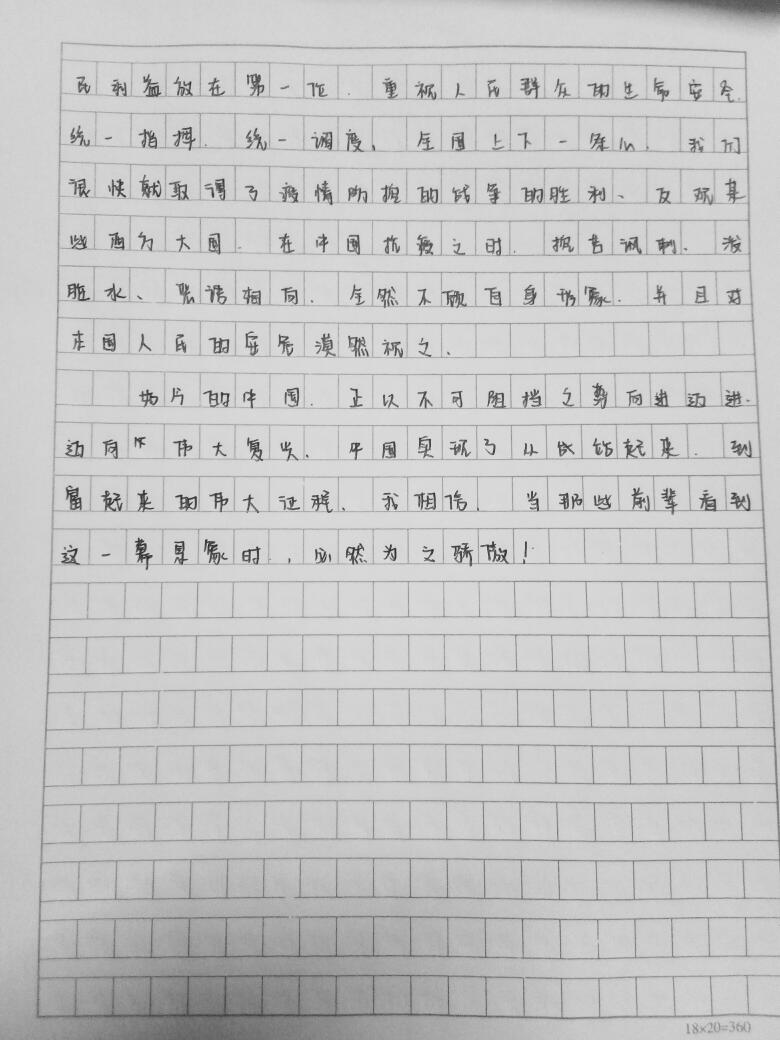 民利益放在第一位.重视人民群众的生命安全.
统一指挥.统一调度、全国上下一条心.我们
很快就取得了疫情防控的战争的胜利、反观某
些西方大国.在中国抗疫之时.挖苦讽刺.泼
脏水、恶语相向.全然不顾自身形象.并且对
本国人民的安危漠然视之.
如今的中国.正以不可阻挡之势向进迈进.
迈向伟大复兴、中国实现了从战站起来.到
富起来的伟大征程、我相信.当那些前辈看到
这一幕景象时,必然为之骄傲!
18×20=360